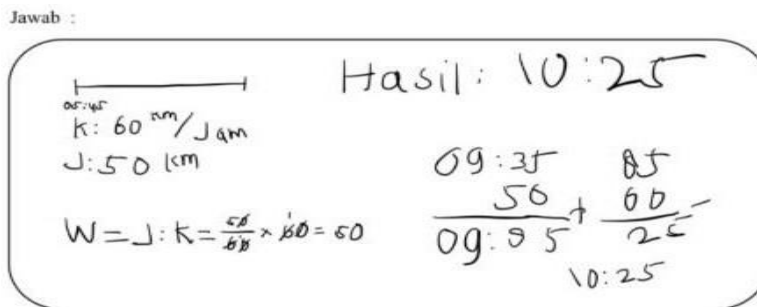 Jawab :
Hasil: 10:25
K: 60 km/Jam
J: 50 km
W = J : K = 50/60 × 60 = 50
09:35
50 +
09:85
85
60 -
25
10:25